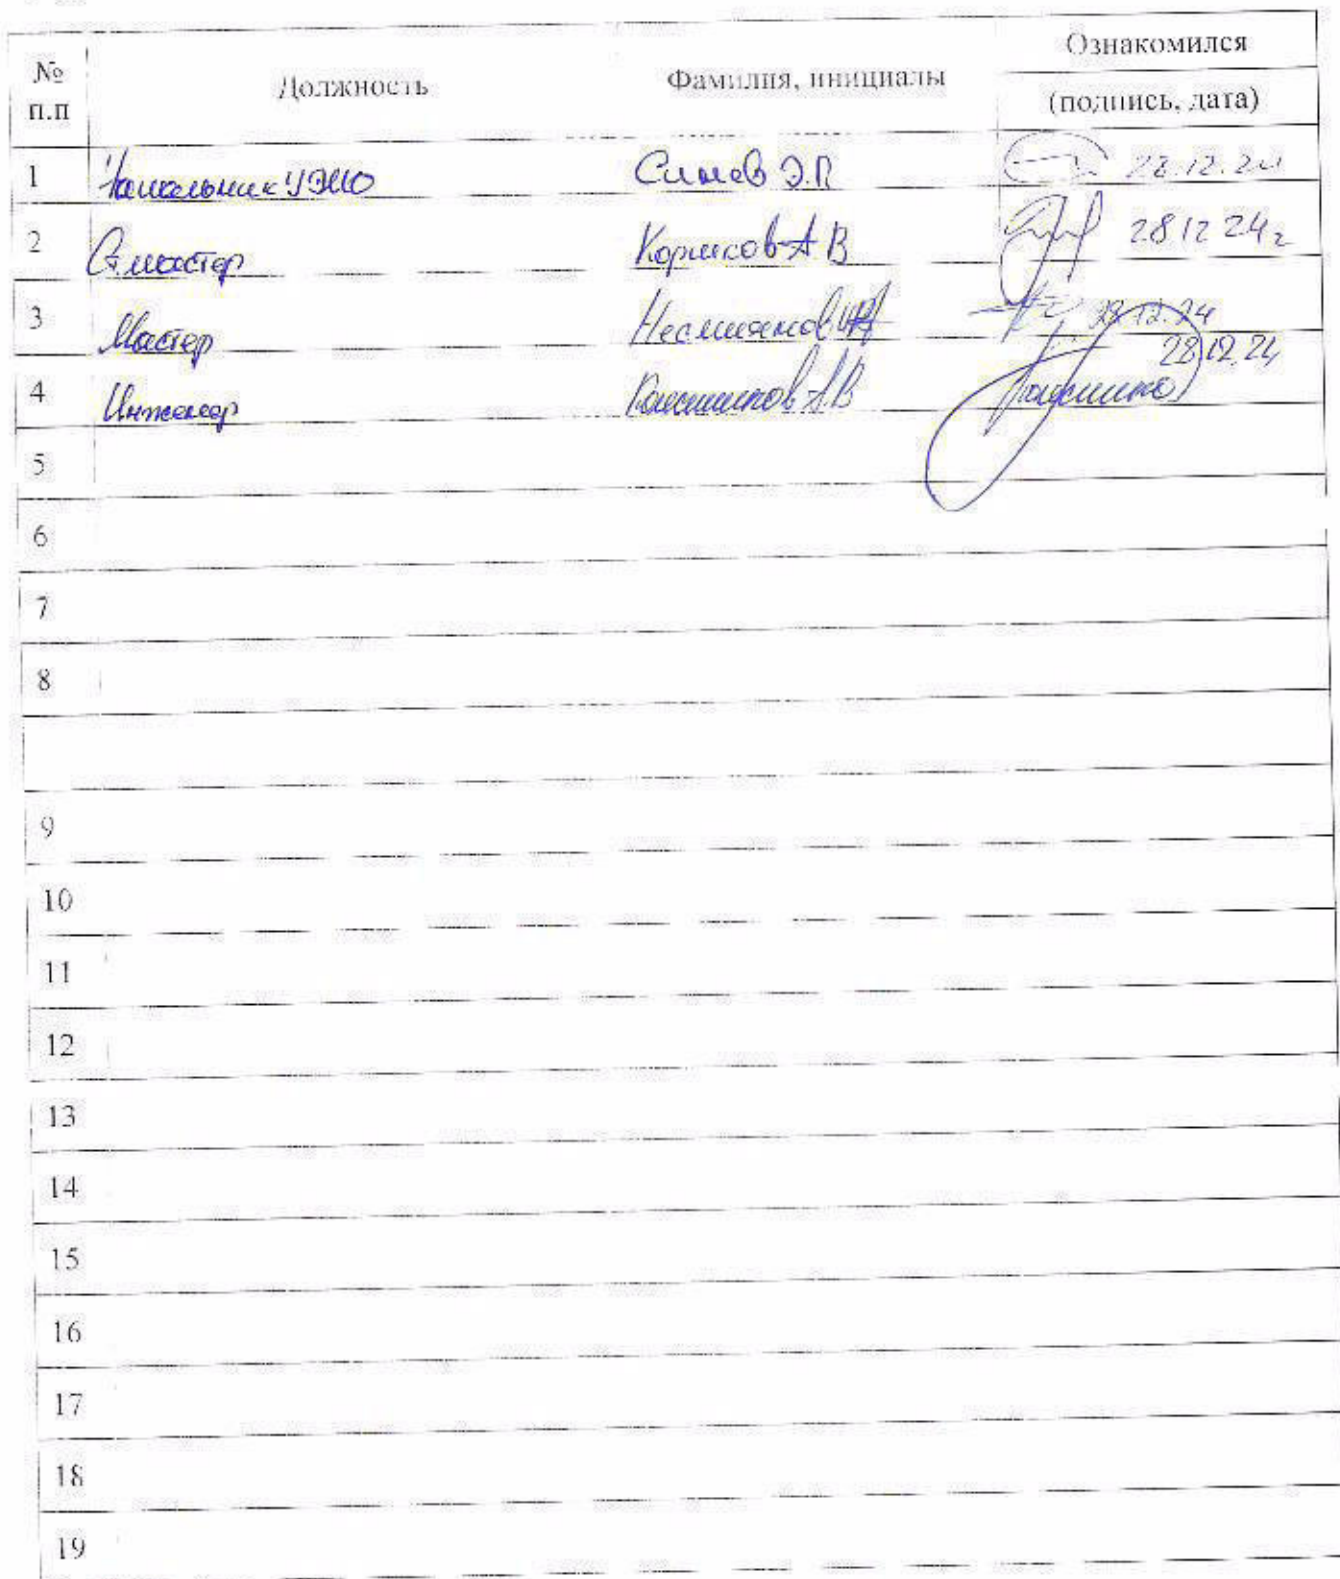 № п.п Должность Фамилия, инициалы Ознакомился (подпись, дата)
1 Начальник УЭМО Симов Э.П 28.12.24
2 Ст мастер А В 28 12 24г
3 Мастер Несмиянов 28.12.24
4 Инженер А.В 28.12.24
5
6
7
8
9
10
11
12
13
14
15
16
17
18
19